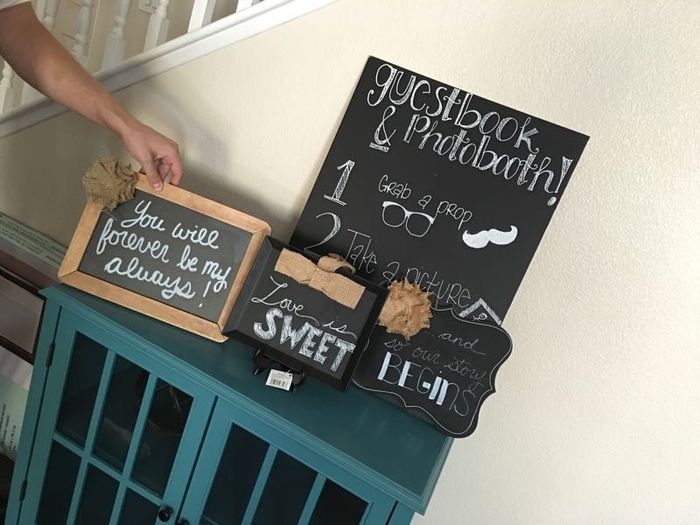 guestbook
& Photobooth!
1 Grab a prop
2 Take a picture
You will
forever be my
always!
Love is
SWEET
and
so our story
BEGINS